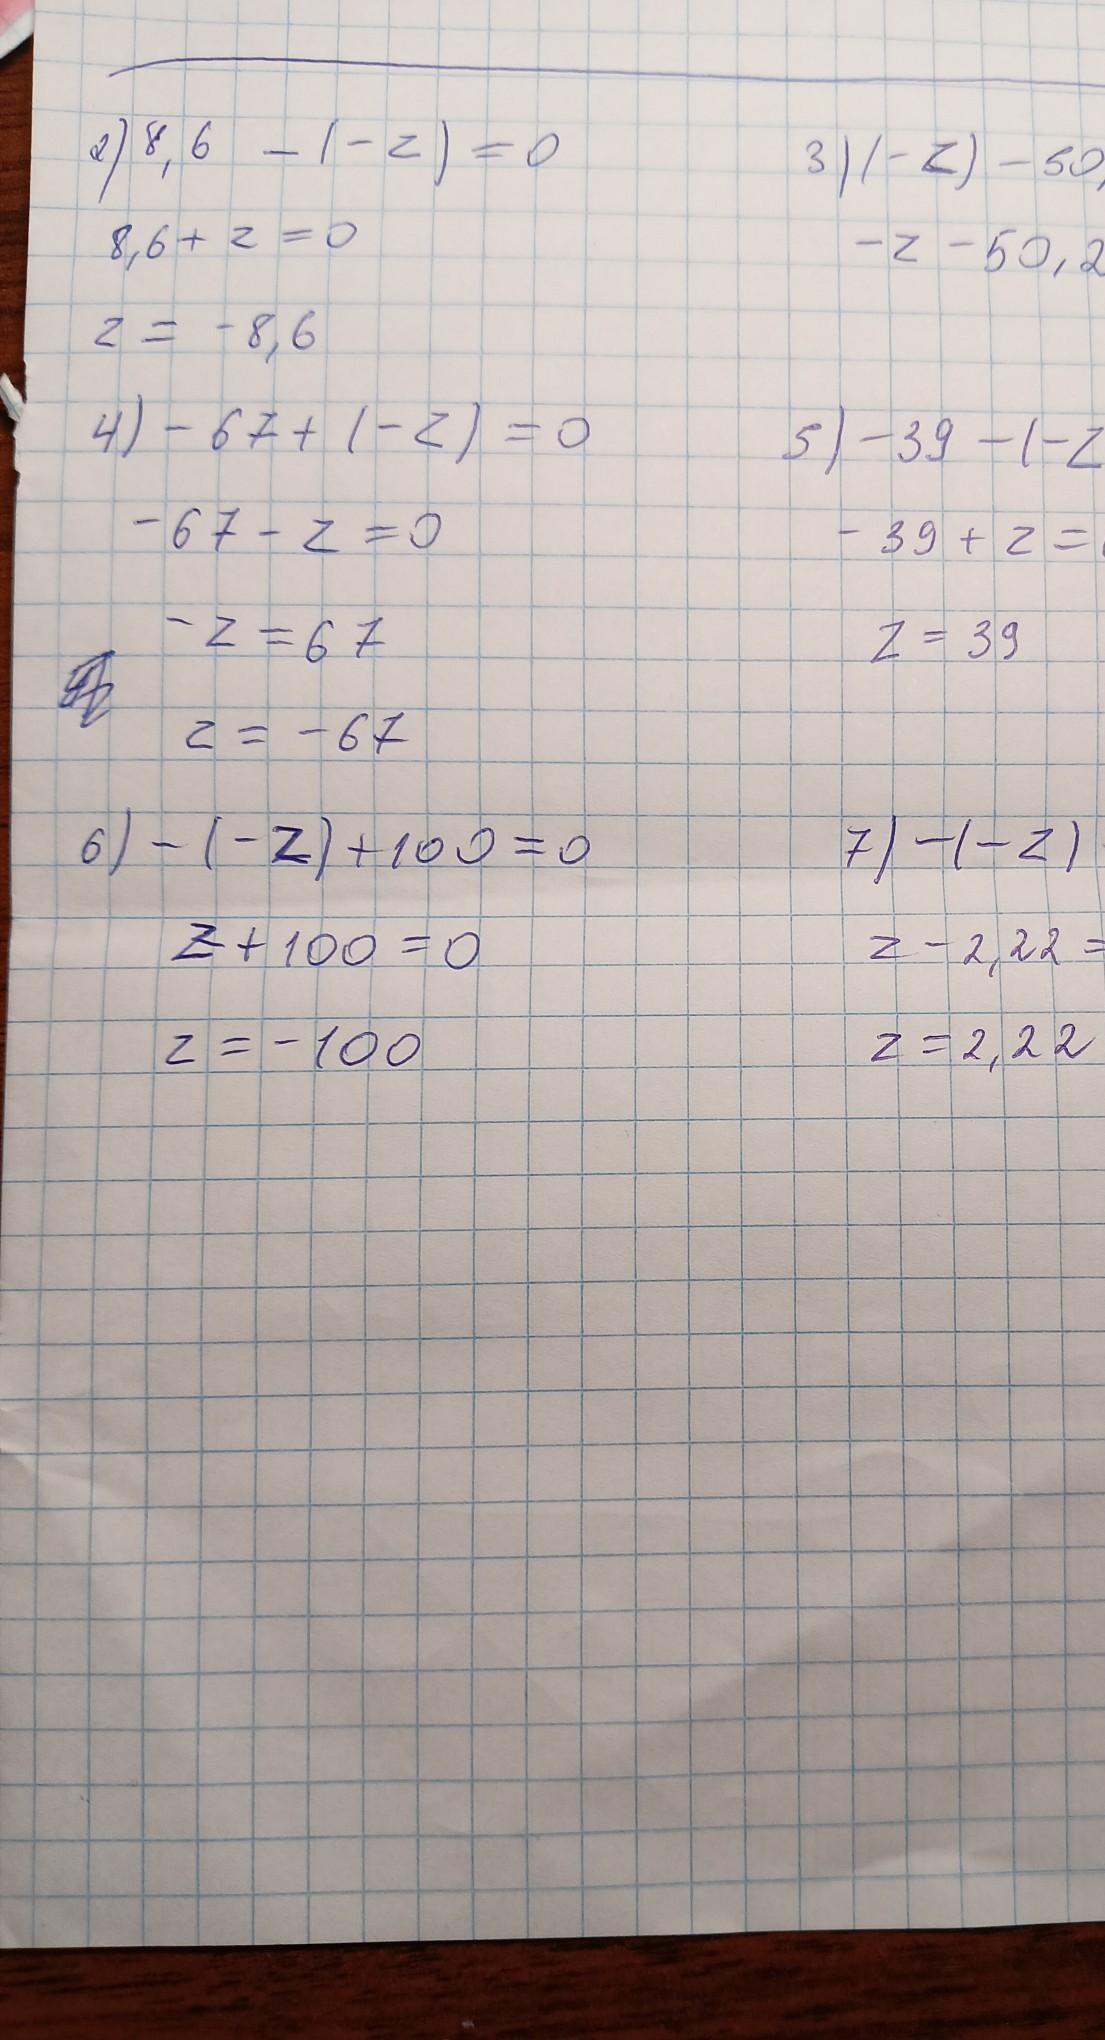 2) 8,6 - (-z) = 0
8,6 + z = 0
z = -8,6
3) (-z) - 50,
-z - 50,2
4) - 67 + (-z) = 0
-67 - z = 0
-z = 67
z = -67
5) -39 - (-z
-39 + z =
z = 39
6) - (-z) + 100 = 0
z + 100 = 0
z = -100
7) -(-z)
z - 2,22 =
z = 2,22